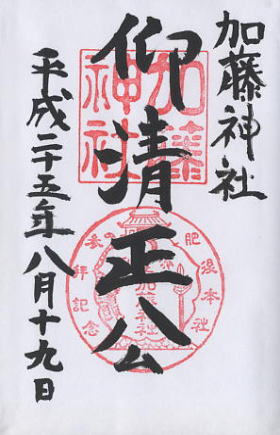 加藤神社
仰清正公
平成二十五年八月十九日
加藤
神社
加藤神社
参拝記念